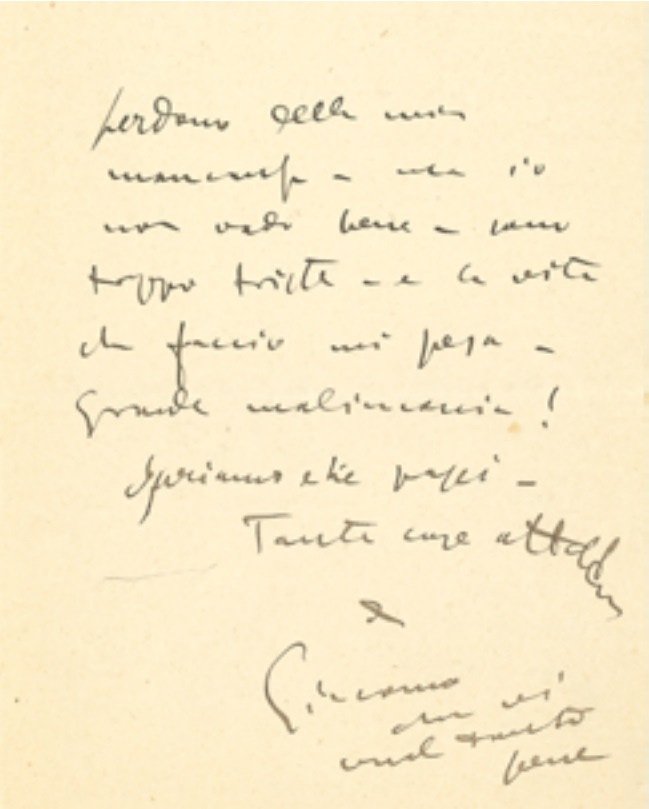 perdono della mia
mancanza - ma io
non vado bene - sono
troppo triste - e la vita
che faccio mi pesa -
Grande malinconia!
Speriamo che passi -
Tante cose a
Giacomo
che vi
vuol tanto
bene